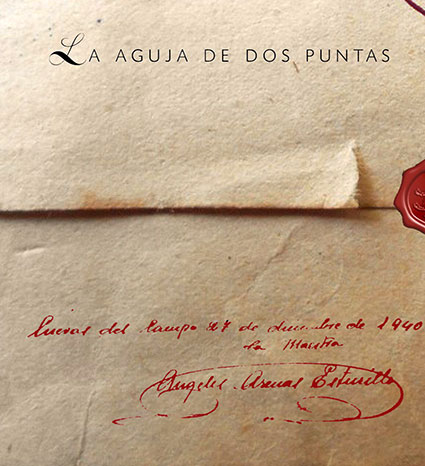 LA AGUJA DE DOS PUNTAS
Cuevas del Campo 27 de diciembre de 1940
La Maestra
Angeles Arenas Esturillo